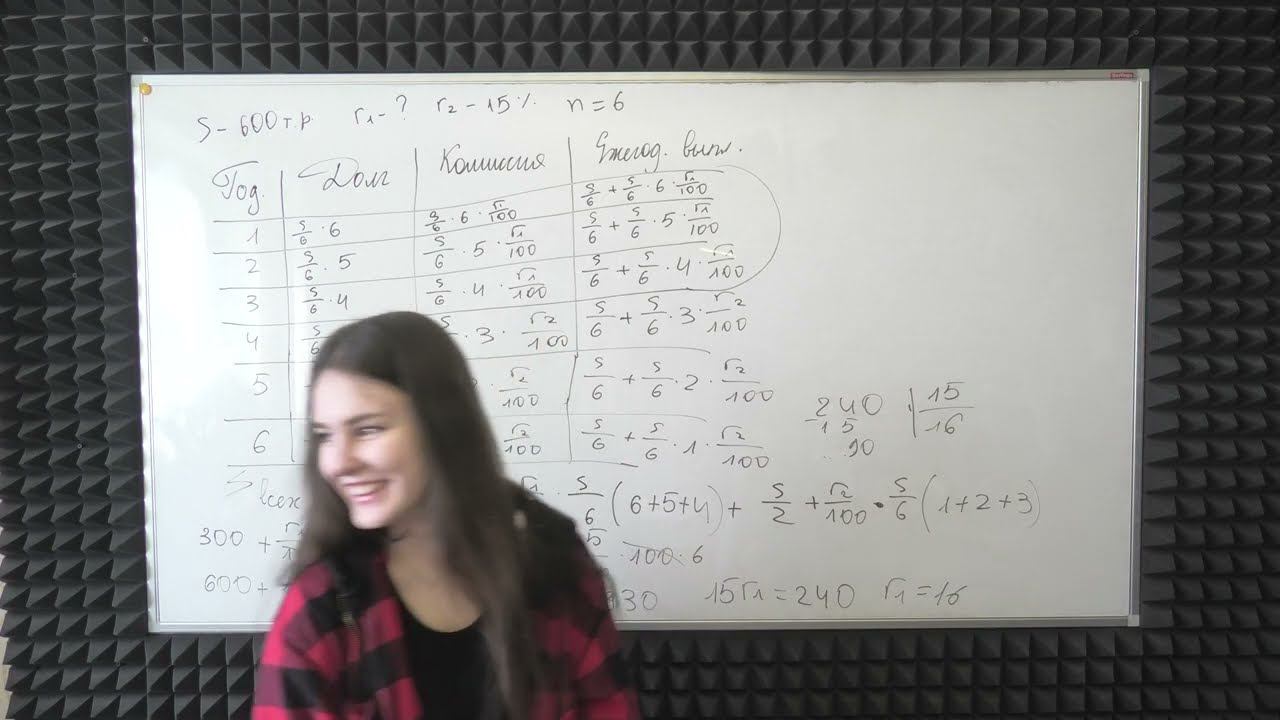 S - 600 т.р. r₁ - ? r₂ - 15% n = 6
Год. Долг Комиссия Ежегод. выпл.
1 S/6 · 6 S/6 · 6 · r₁/100 S/6 + S/6 · 6 · r₁/100
2 S/6 · 5 S/6 · 5 · r₁/100 S/6 + S/6 · 5 · r₁/100
3 S/6 · 4 S/6 · 4 · r₁/100 S/6 + S/6 · 4 · r₁/100
4 S/6 · 3 · r₂/100 S/6 + S/6 · 3 · r₂/100
5 · r₂/100 S/6 + S/6 · 2 · r₂/100
6 r₂/100 S/6 + S/6 · 1 · r₂/100
240 | 15
15 16
90
S всех · S/6 (6+5+4) + S/2 + r₂/100 · S/6 (1+2+3)
300 + · 100 · 6
600 + 30 15r₁ = 240 r₁ = 16